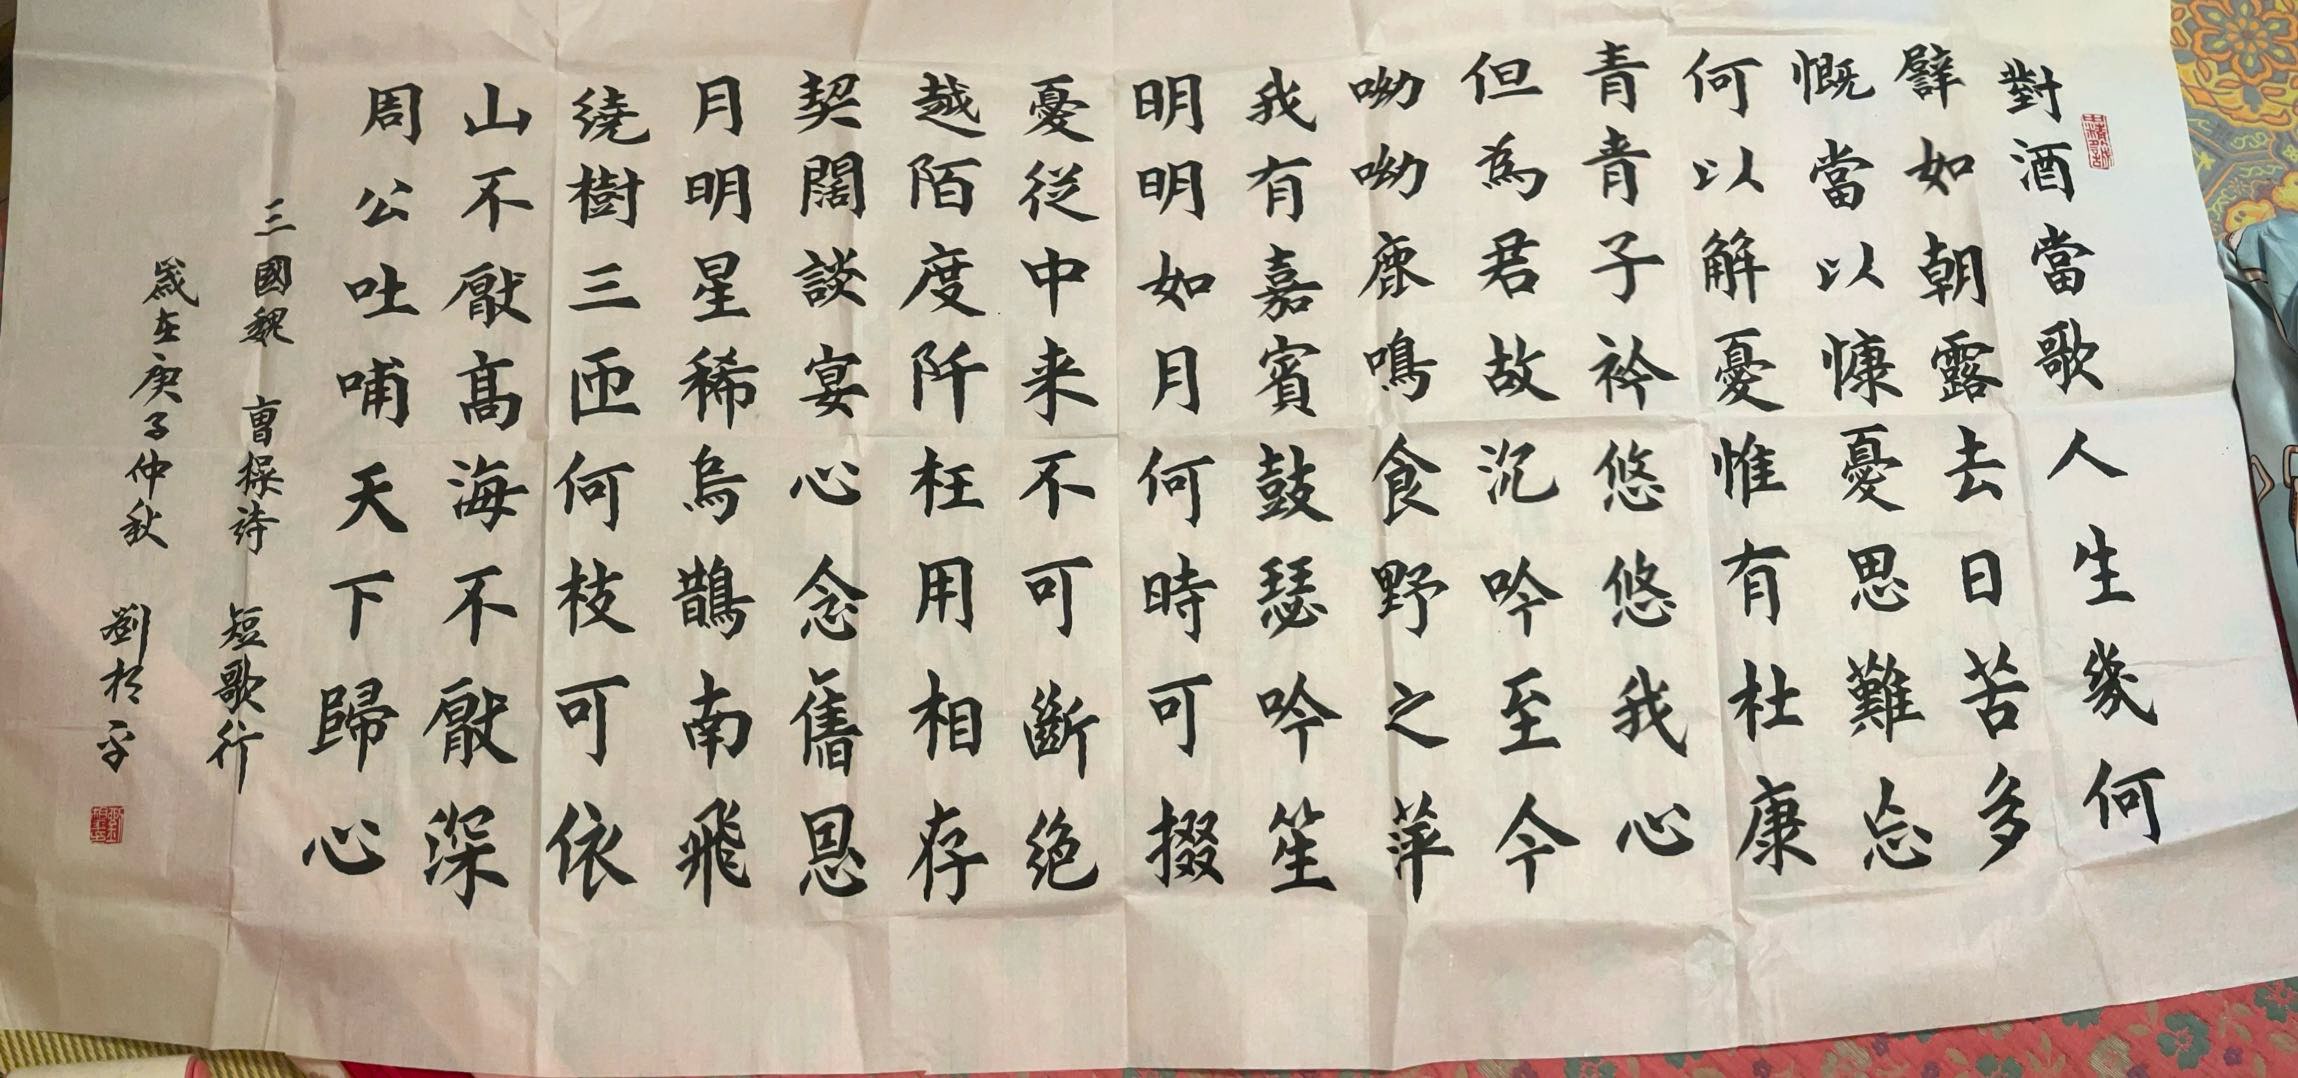 對酒當歌人生幾何
譬如朝露去日苦多
慨當以慷憂思難忘
何以解憂惟有杜康
青青子衿悠悠我心
但為君故沉吟至今
呦呦鹿鳴食野之萍
我有嘉賓鼓瑟吟笙
明明如月何時可掇
憂從中来不可斷絕
越陌度阡枉用相存
契闊談宴心念舊恩
月明星稀烏鵲南飛
繞樹三匝何枝可依
山不厭高海不厭深
周公吐哺天下歸心
三國魏 曹操詩 短歌行
歲在庚子仲秋 劉